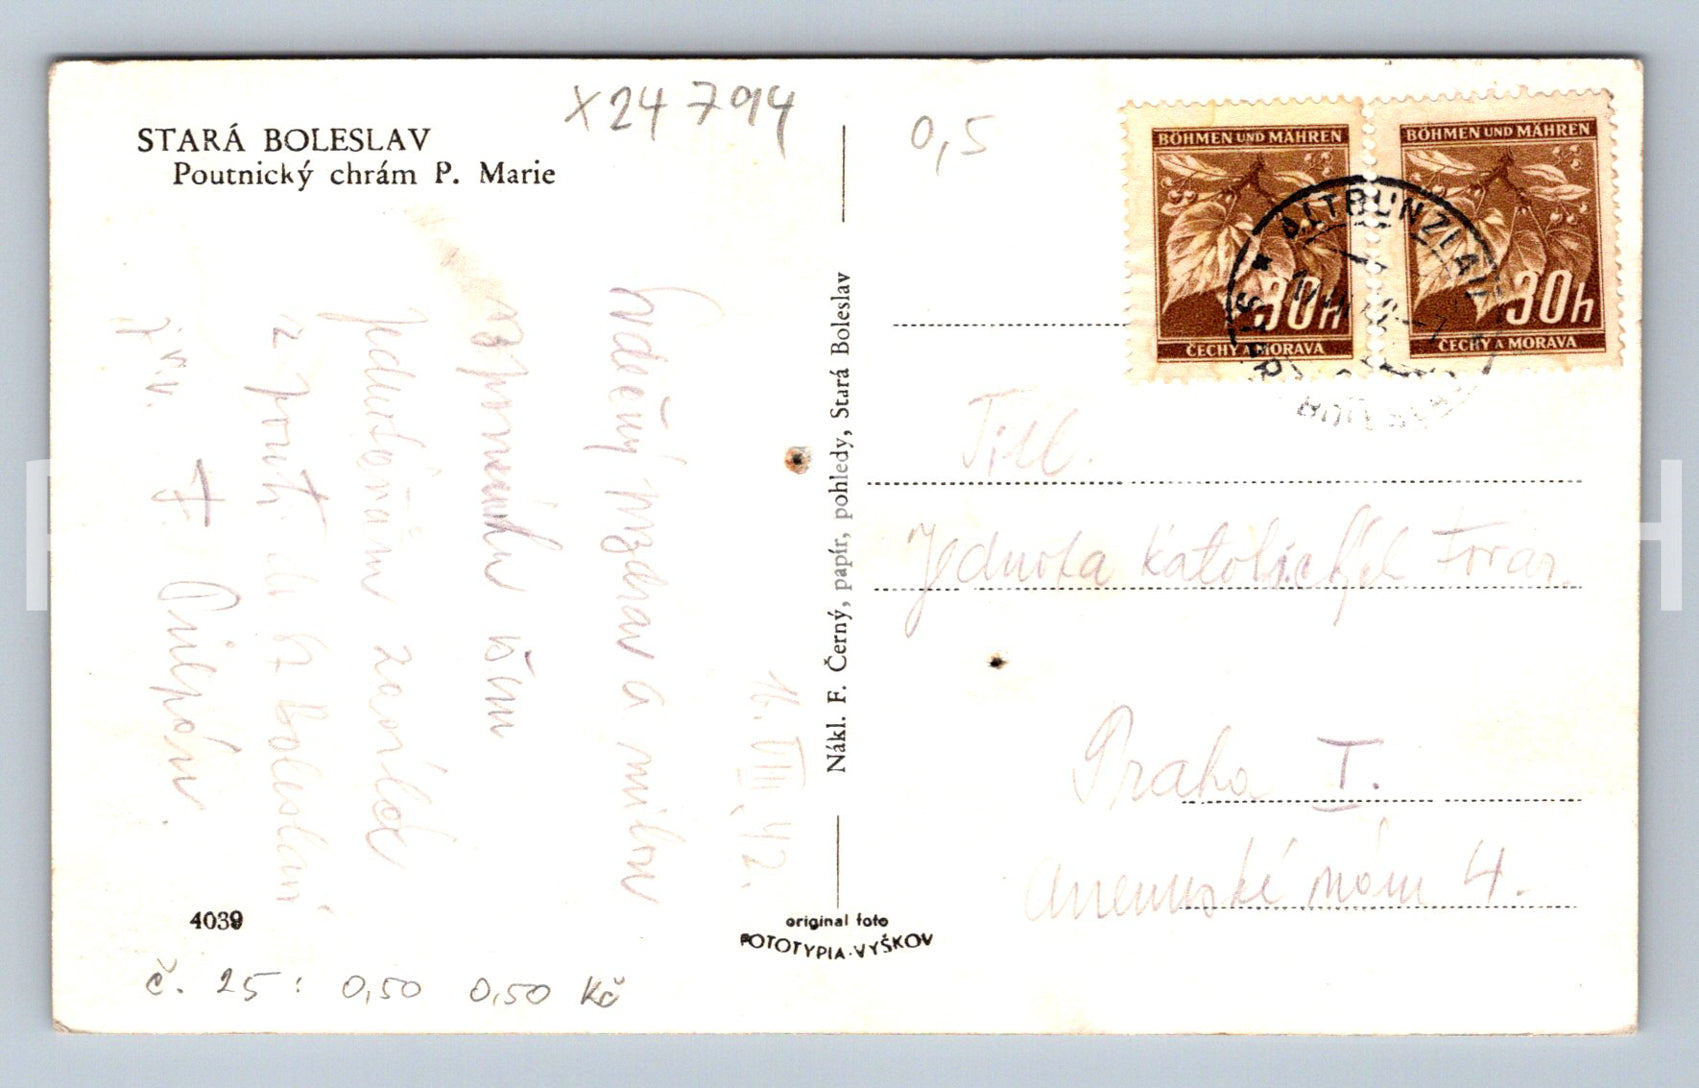 STARÁ BOLESLAV
Poutnický chrám P. Marie
X24794
0,5
BÖHMEN UND MÄHREN
30h
ČECHY A MORAVA
BÖHMEN UND MÄHREN
30h
ČECHY A MORAVA
ALTBUNZLAU
16. VIII. 42.
Srdečný pozdrav a milou
vzpomínku všem
z pouti do St. Boleslavi
Nákl. F. Černý, papír, pohledy, Stará Boleslav
Titl.
Jednota katolických
Praha I.
Anenské nám 4.
4039
original foto
FOTOTYPIA-VYŠKOV
č. 25: 0,50 0,50 Kč